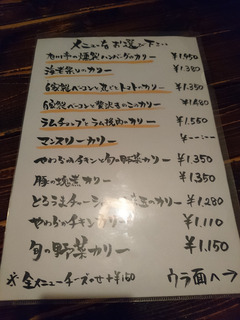 メニューをお選び下さい
の燻製ハンバーグのカリー ¥1,450
海老祭りのカリー ¥1,380
自家製ベーコンと丸ごとトマトのカリー ¥1,350
自家製ベーコンと きのこのカリー
ラムチョップとラム挽肉のカリー ¥1,550
マンスリーカリー ¥--:--
やわらかチキンと旬の野菜カリー ¥1,350
豚の塊煮カリー ¥1,350
とろうまチャーシュー 玉のカリー ¥1,280
やわらかチキンカリー ¥1,110
旬の野菜カリー ¥1,150
※全メニューチーズのせ+¥150
ウラ面へ→